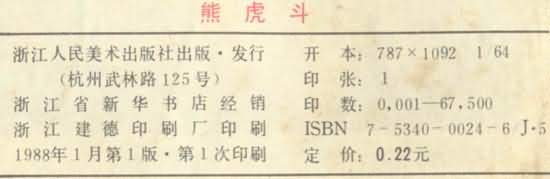 熊虎斗
浙江人民美术出版社出版·发行
(杭州武林路125号)
浙江省新华书店经销
浙江建德印刷厂印刷
1988年1月第1版·第1次印刷
开 本: 787×1092 1/64
印 张: 1
印 数: 0,001—67,500
ISBN 7-5340-0024-6/J·5
定 价: 0.22元